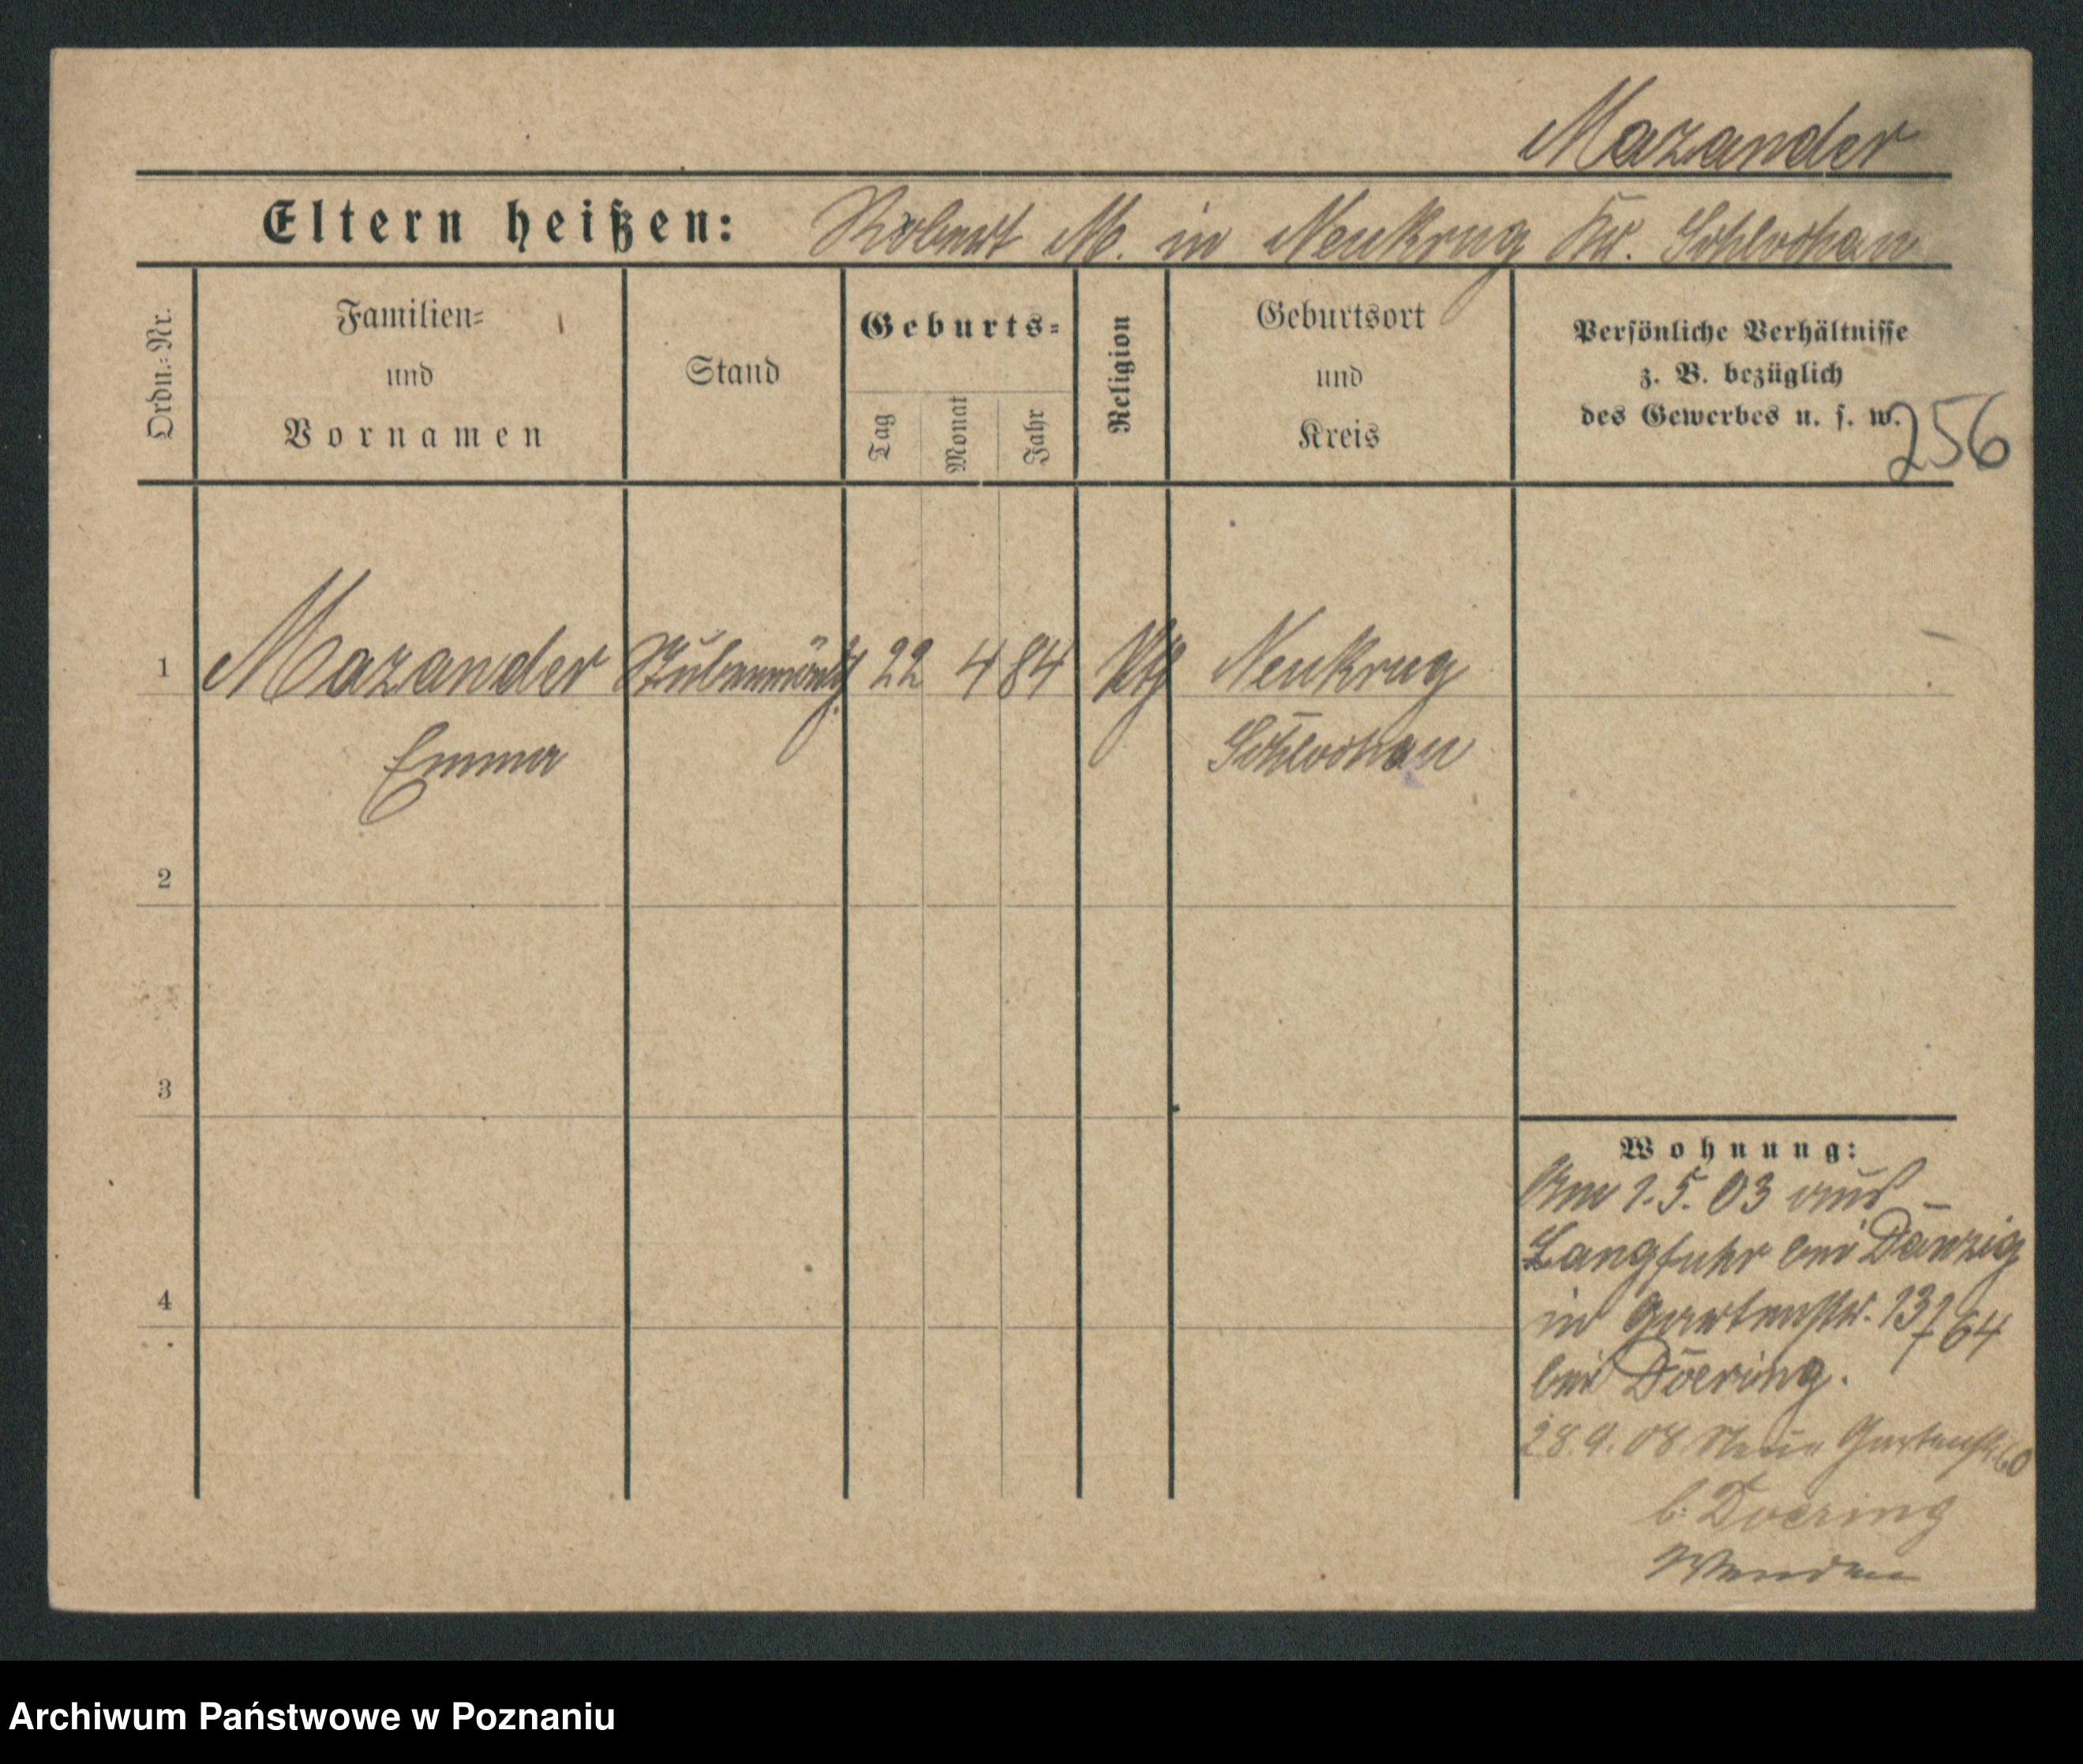 Mazander
Eltern heißen: Robert M. in Neukrug Kr. Schlochau
Ordn.-Nr.
Familien-
und
Vornamen
Stand
Geburts-
Tag
Monat
Jahr
Religion
Geburtsort
und
Kreis
Persönliche Verhältnisse
z. B. bezüglich
des Gewerbes u. s. w.
256
1 Mazander Stubenmädch. 22 4 84 Neukrug
Emma Schlochau
2
3
4
Wohnung:
Am 1.5.03 aus
Langfuhr bei Danzig
in Gartenstr. 64
bei Doering.
28.9.08 Neue Gartenstr. 60
b. Doering
Wenden
Archiwum Państwowe w Poznaniu